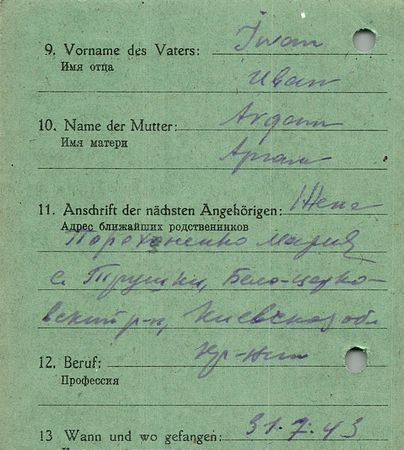 9. Vorname des Vaters: Iwan
Имя отца
Иван
10. Name der Mutter:
Имя матери
11. Anschrift der nächsten Angehörigen: Жена
Адрес ближайших родственников
Мария
с. Трушки, Бело-Церко-
вский р-н, Киевская обл
12. Beruf:
Профессия
13 Wann und wo gefangen: 31.7.43